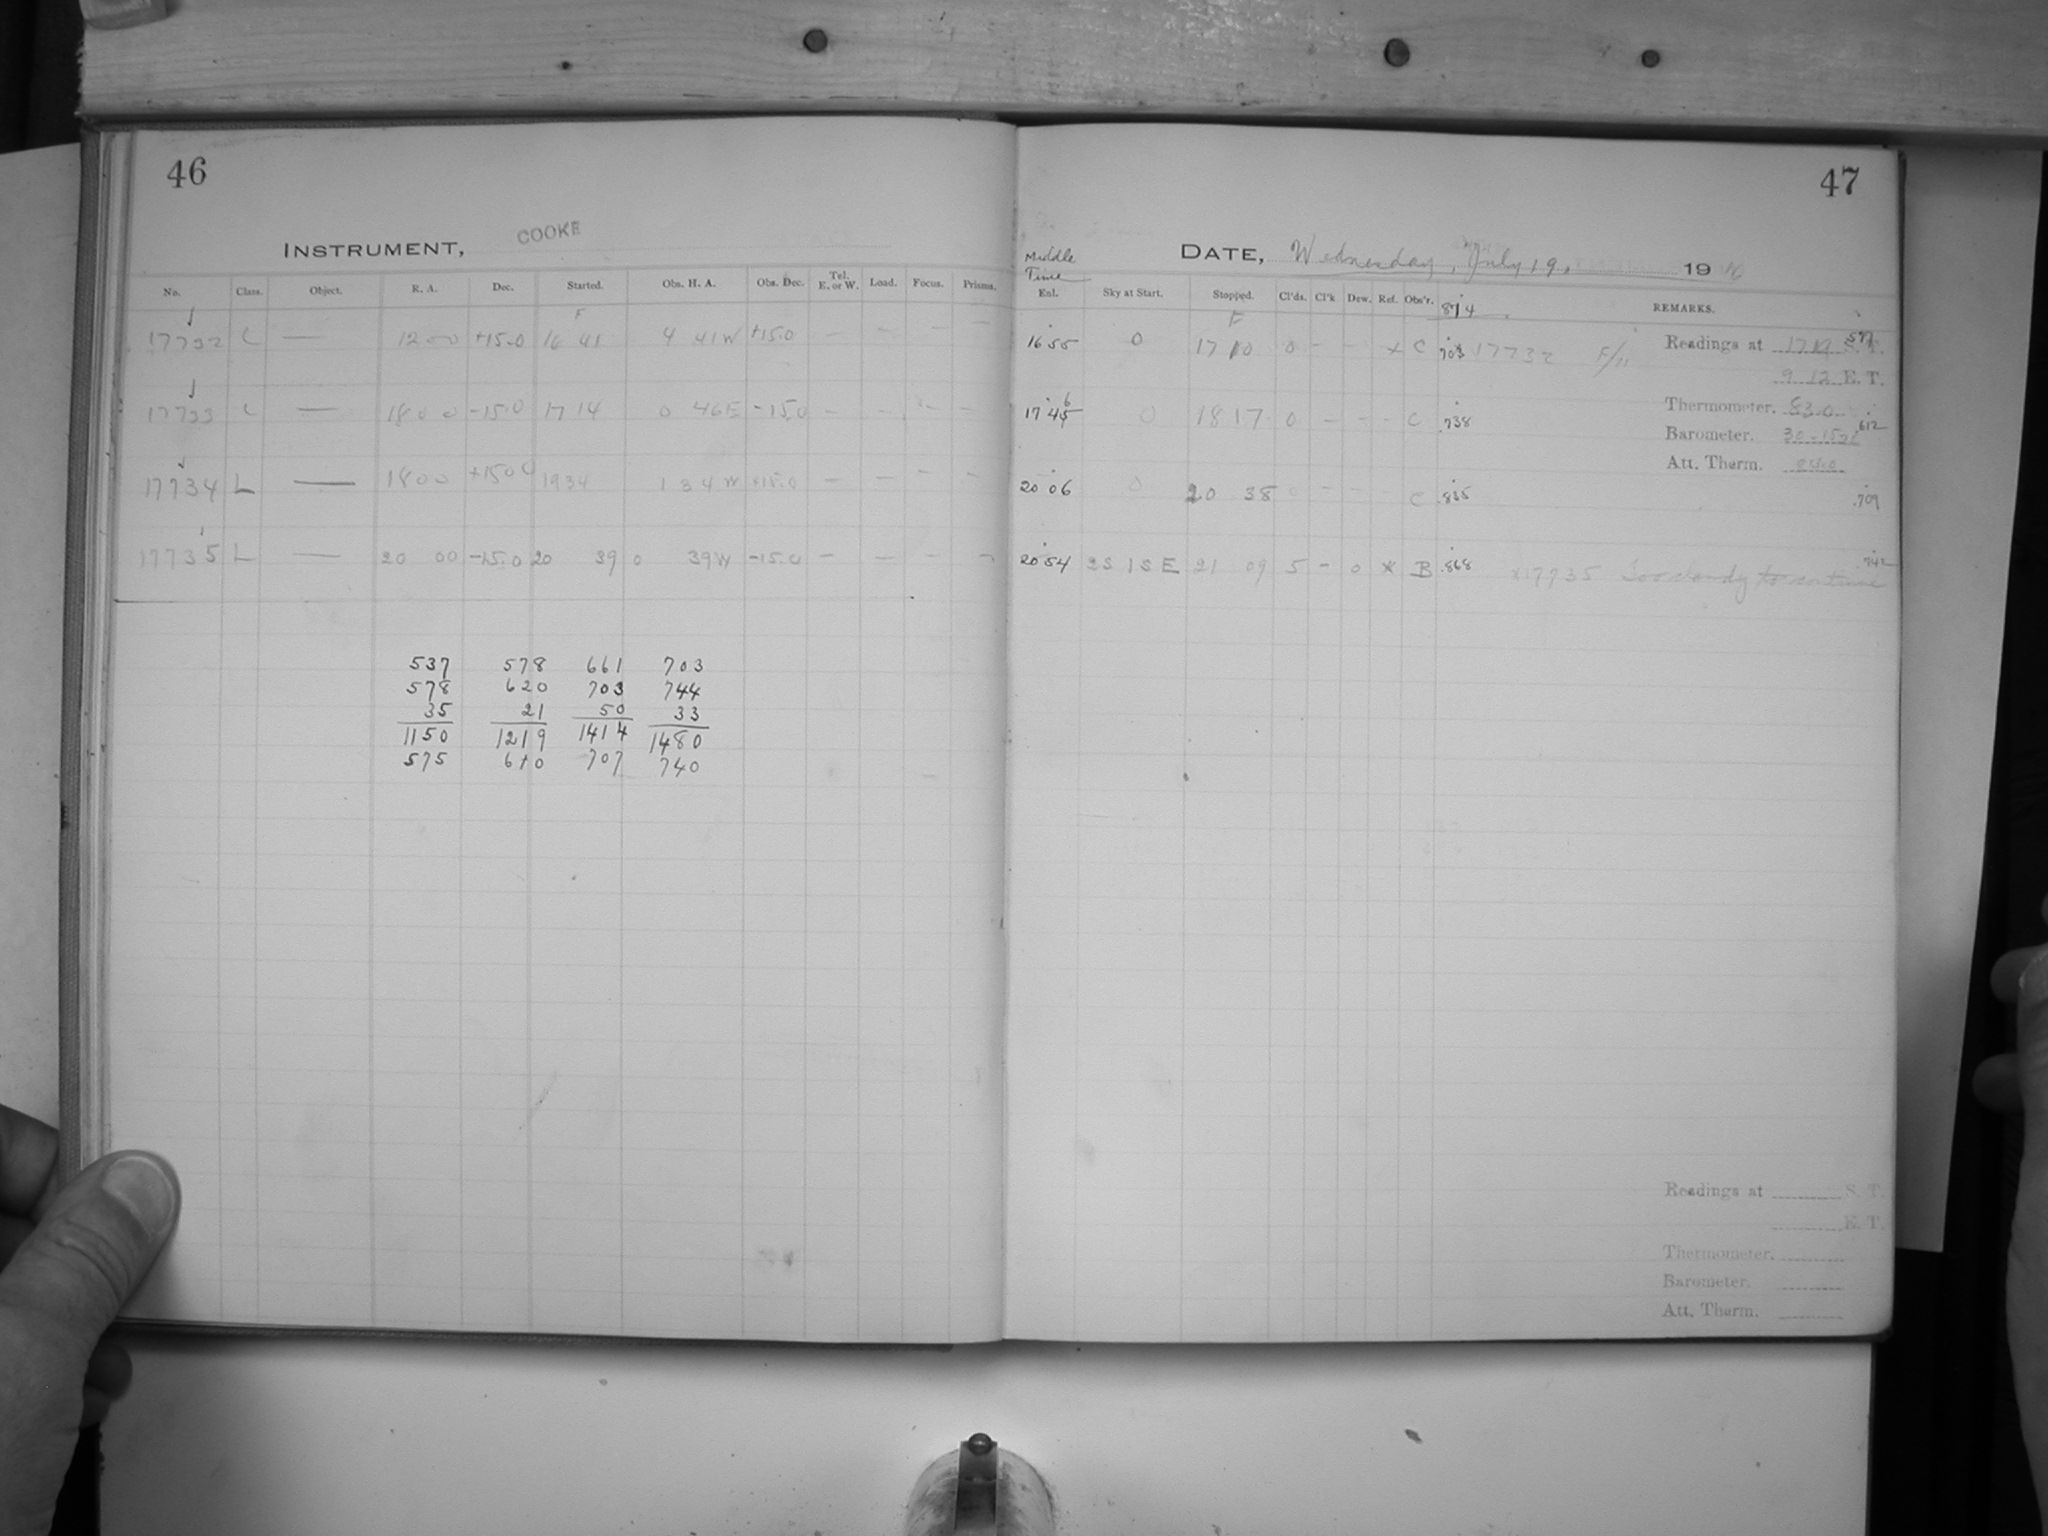 46
INSTRUMENT, COOKE
No. Class. Object. R. A. Dec. Started. Obs. H. A. Obs. Dec. Tel. E. or W. Load. Focus. Prisms.
F
17732 L — 12 00 +15.0 16 41 4 41 W +15.0 — — — —
17733 L — 18 0 0 -15.0 17 14 0 46 E -15.0 — — — —
17734 L — 18 00 +15.0 19 34 1 34 W +15.0 — — — —
17735 L — 20 00 -15.0 20 39 0 39 W -15.0 — — — —
537 578 661 703
578 620 703 744
35 21 50 33
1150 1219 1414 1480
575 610 707 740
47
Middle Time
DATE, Wednesday, July 19, 19 16
Enl. Sky at Start. Stopped. Cl'ds. Cl'k Dew. Ref. Obs'r. 814 REMARKS.
F
16 55 0 17 10 0 - - x C 703 x 17732 F/11
17 45 6 0 18 17 0 - - - C .738
20 06 0 20 38 0 - - - C .835
20 54 2S 1S E 21 09 5 - 0 * B .868 x17735 Too cloudy to continue
Readings at 17 19 S. T. 577
9 12 E. T.
Thermometer. 83.0
Barometer. 612
Att. Therm. 84.0
.709
.742
Readings at S. T.
E. T.
Thermometer.
Barometer.
Att. Therm.